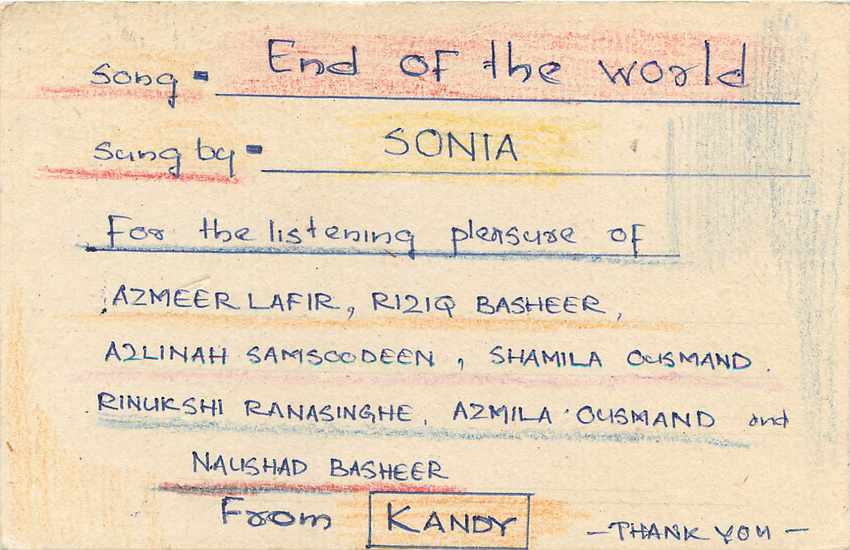 Song = End of the world
Sung by = SONIA
For the listening pleasure of
AZMEER LAFIR, RIZIQ BASHEER,
AZLINAH SAMSOODEEN, SHAMILA OUSMAND.
RINUKSHI RANASINGHE, AZMILA OUSMAND and
NAUSHAD BASHEER
From KANDY
- THANK YOU -